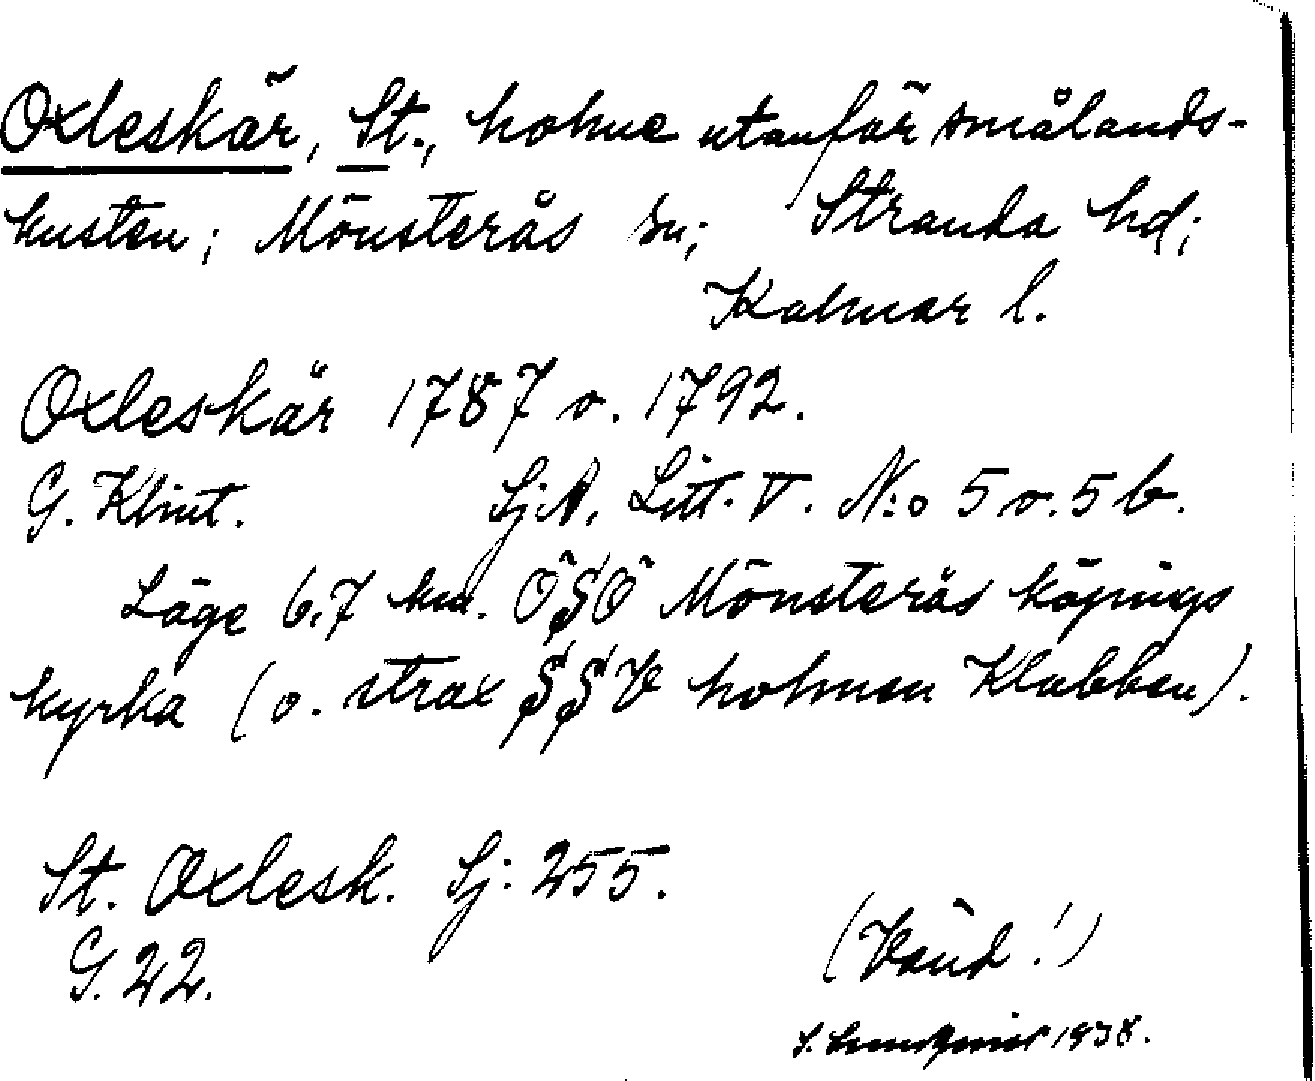 Oxleskär, St., holme utanför smålands-
kusten; Mönsterås sn; Stranda hd;
Kalmar l.
Oxleskär 1787 o. 1792.
G. Klint. Sj.A, Litt. V. N:o 5 o. 5 b.
Läge 6.7 km. ÖSÖ Mönsterås köpings
kyrka (o. strax SSV holmen Klabben).
St. Oxlesk. Sj: 255.
G. 22.
(Vänd!)
1938.